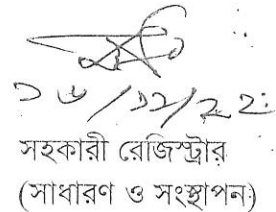 ১৬/১২/২২
সহকারী রেজিস্ট্রার
(সাধারণ ও সংস্থাপন)